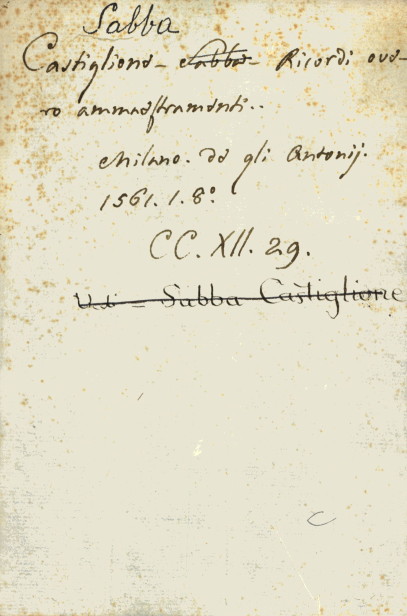 Sabba
Castiglione - Sabba - Ricordi ove-
ro ammaestramenti..
Milano. de gli Antonij.
1561. 1. 8º.
CC. XII. 29.
Sabba Castiglione